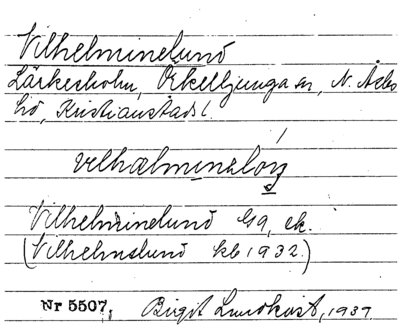 Vilhelminelund
Lärkesholm, Örkelljunga sn, N. Åsbo
hd, Kristianstads l.
Vilhelminelund Ga, ek.
(Vilhelmslund kb 1932.)
Nr 5507, Birgit Lundkvist, 1937